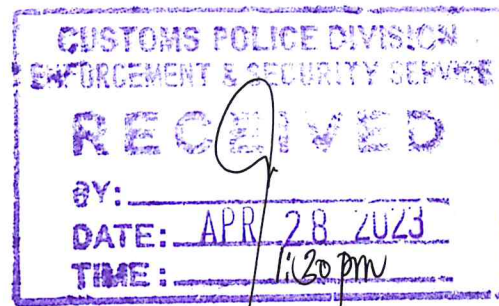 CUSTOMS POLICE DIVISION
ENFORCEMENT & SECURITY SERVICE
RECEIVED
BY:
DATE: APR 28 2023
TIME: 1:30 pm